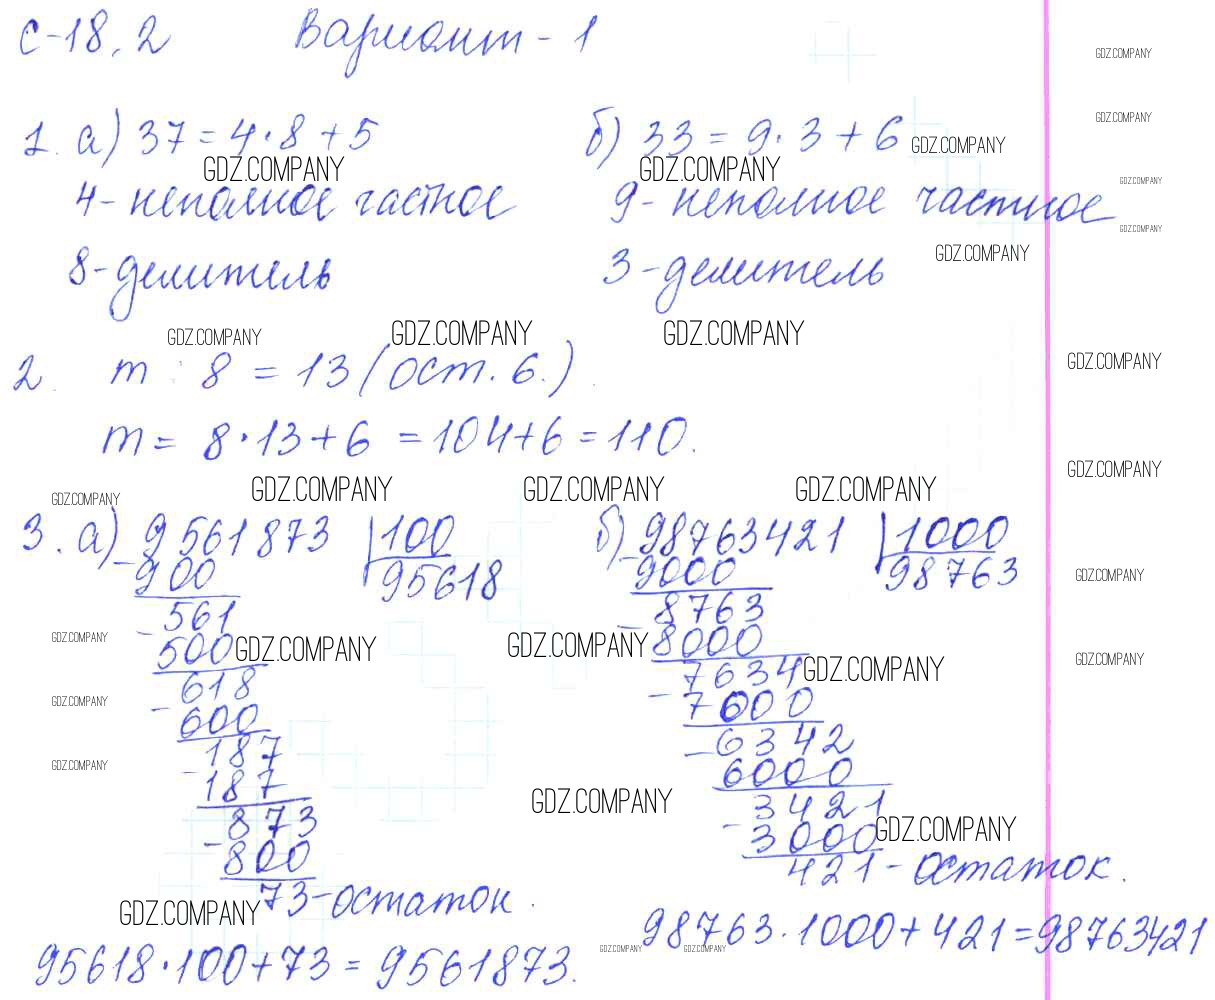 С-18.2 Вариант-1
1. а) 37 = 4·8+5 б) 33 = 9·3+6
GDZ.COMPANY GDZ.COMPANY GDZ.COMPANY
4- неполное частное 9- неполное частное
8-делитель 3-делитель
GDZ.COMPANY GDZ.COMPANY GDZ.COMPANY
2. m : 8 = 13 (ост. 6.)
m = 8·13+6 = 104+6 = 110.
GDZ.COMPANY GDZ.COMPANY GDZ.COMPANY GDZ.COMPANY
3. а) 9561873 |100 б) 98763421 |1000
- 900 95618 - 9000 98763
561 8763
- 500 - 8000
GDZ.COMPANY GDZ.COMPANY GDZ.COMPANY
618 7634
- 600 - 7000
187 - 6342
- 187 6000
873 3421
- 800 - 3000
GDZ.COMPANY GDZ.COMPANY
73-остаток. 421-остаток.
GDZ.COMPANY
95618·100+73 = 9561873. 98763·1000+421=98763421
GDZ.COMPANY GDZ.COMPANY
GDZ.COMPANY
GDZ.COMPANY
GDZ.COMPANY
GDZ.COMPANY
GDZ.COMPANY
GDZ.COMPANY
GDZ.COMPANY
GDZ.COMPANY
GDZ.COMPANY
GDZ.COMPANY
GDZ.COMPANY
GDZ.COMPANY